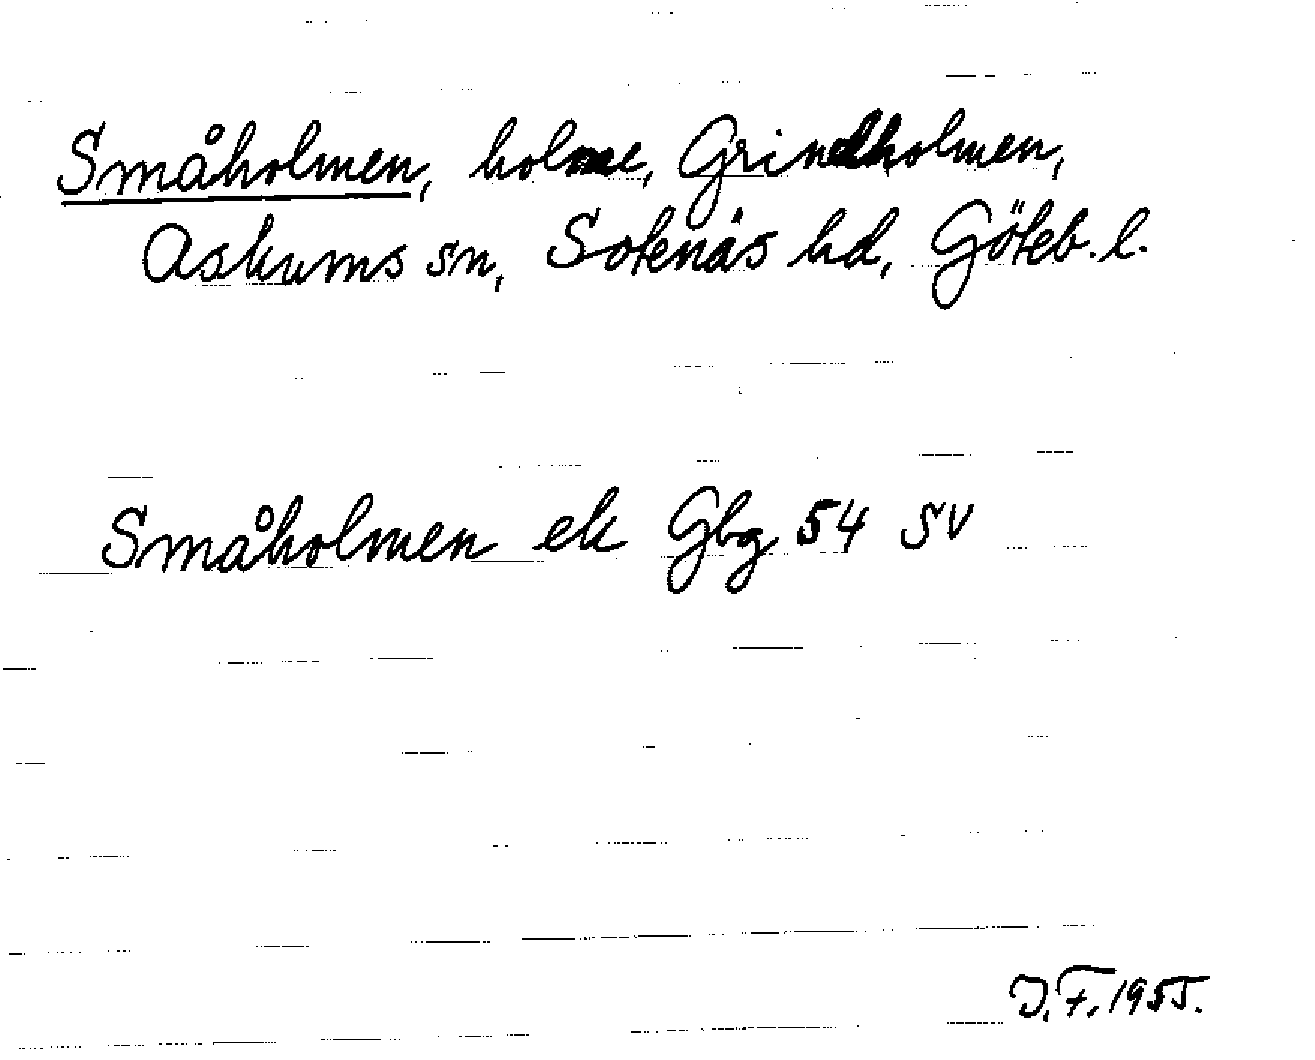 Småholmen, holme, Grindholmen,
Askums sn, Sotenäs hd, Göteb. l.
Småholmen ek Gbg 54 SV
J.F. 1955.